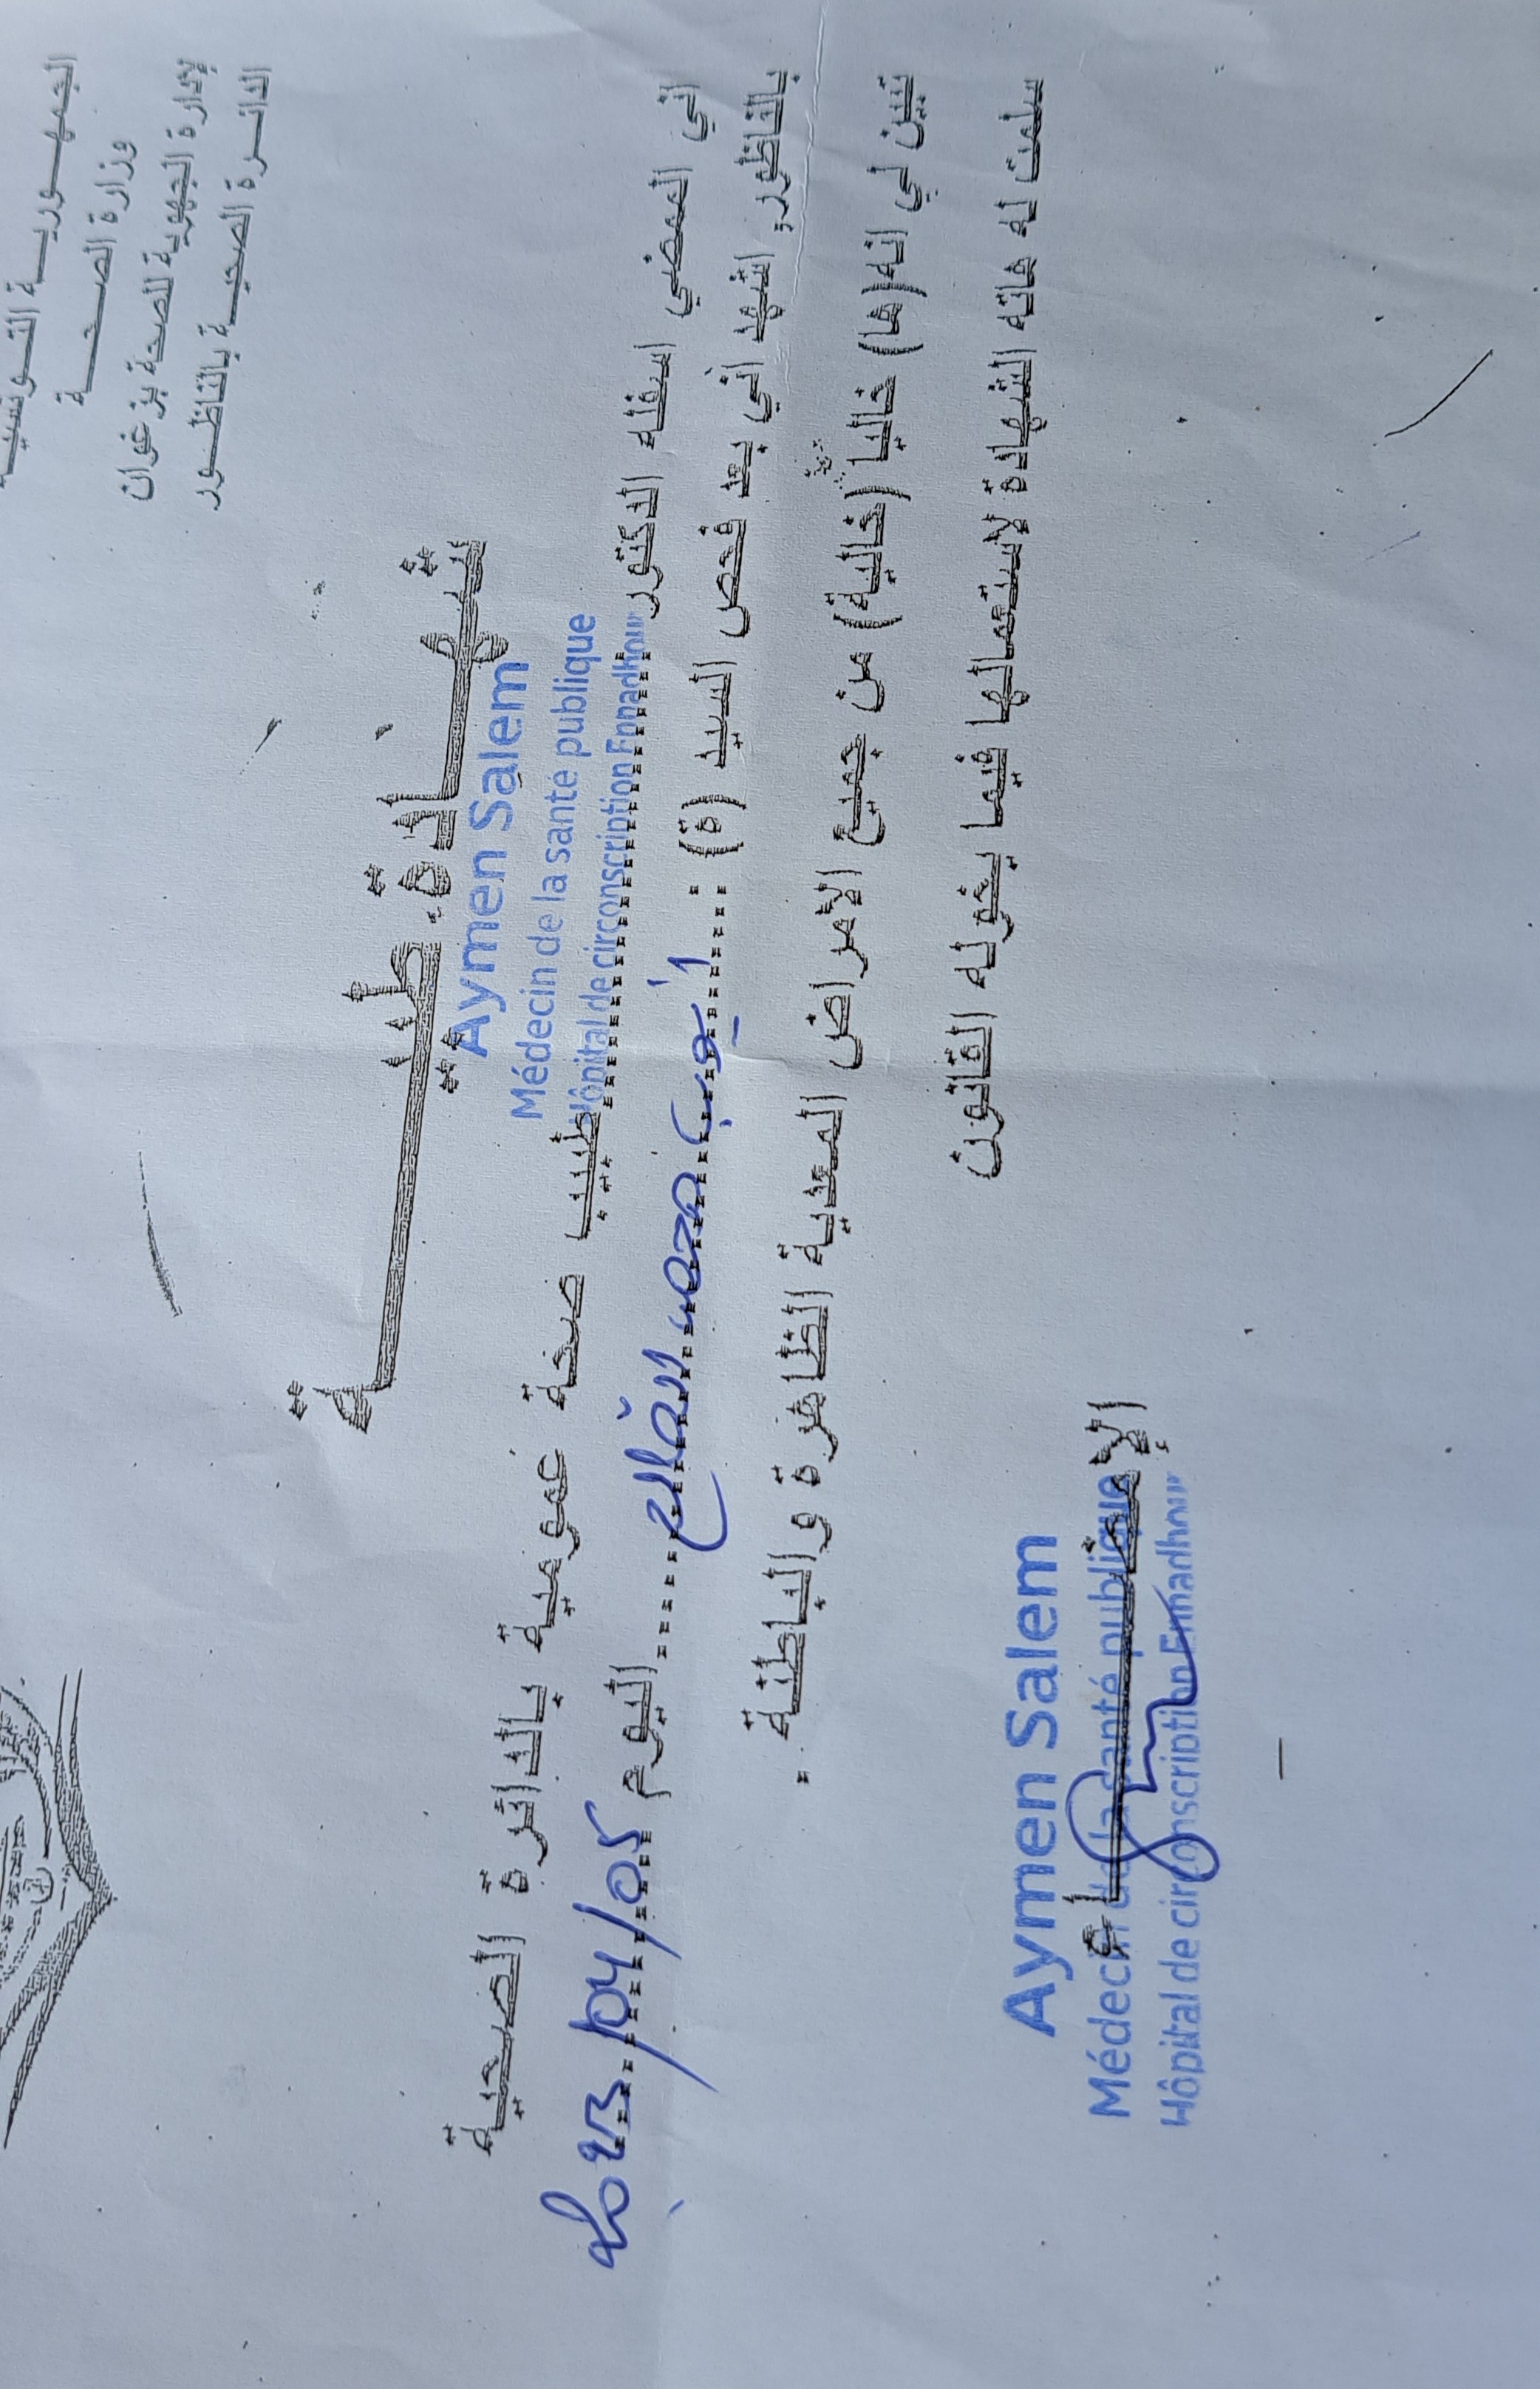 الجمهورية التونسية
وزارة الصحة
الإدارة الجهوية للصحة بزغوان
الدائرة الصحية بالناظور
شهادة طبية
Aymen Salem
Médecin de la santé publique
Hôpital de circonscription Ennadhour
اني الممضي اسفله الدكتور طبيب صحة عمومية بالدائرة الصحية
بالناظور، اشهد أني بعد فحص السيد (ة) أيوب اليوم 2023/04/05
تبين لي انه(ها) خاليا (خالية) من جميع الأمراض المعدية الظاهرة والباطنة.
سلمت له هاته الشهادة لاستعمالها فيما يخوله القانون
الإمضاء
Aymen Salem
Médecin de la santé publique
Hôpital de circonscription Ennadhour